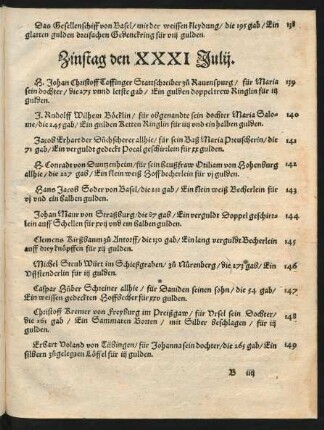 Das Gesellenschiff von Basel/ mit der weissen kleydung/ die 191 gab/ Ein 138
glatten gulden dreifachen Gedenckring für viij gulden.
Zinstag den XXXI Julij.
H. Johan Christoff Toffinger Stattschreiber zu Rauenspurg/ für Maria 139
sein dochter/ die 275 vnnd letste gab/ Ein gulden doppel trew Ringlin für iij
gulden.
J. Rudolff Wilhem Böcklin/ für obgenandte sein dochter Maria Salo= 140
me/ die 245 gab/ Ein gulden Ketten Ringlin für iiij vnd ein halben gulden.
Jacob Erhart der Büchscherer allhie/ für sein Baß Maria Preuscherin/ die 141
71 gab/ Ein verguldt gedeckt Pocal geschirlein für xx gulden.
H. Conradt von Duntzenheim/ für sein Haußfraw Otiliam von Hohenburg 142
allhie/ die 227 gab/ Ein klein weiß Hoffbecherlein für vj gulden.
Hans Jacob Soder von Basel/ die 211 gab/ Ein klein weiß Becherlein für 143
vj vnd ein halben gulden.
Johan Maur von Straßburg/ die 87 gab/ Ein verguldt Doppel geschirr= 144
lein auff Schellen für xvij vnd ein halben gulden.
Clemens Kirßbaum zu Antorff/ die 130 gab/ Ein lang verguldt Becherlein 145
auff drey knöpffen für xij gulden.
Michel Streub Würt im Schießgraben/ zu Nürenberg/ die 173 gab/ Ein 146
Vffstenderlin für iij gulden.
Caspar Huber Schreiner allhie/ für Dauiden seinen sohn/ die 54 gab/ 147
Ein weissen gedeckten Hoffbecher für xxv gulden.
Christoff Kremer von Freyburg im Preißgaw/ für Vrsel sein Dochter/ 148
die 261 gab/ Ein Sammaten Botten/ mit Silber beschlagen/ für iij
gulden.
Erhart Voland von Tübingen/ für Johanna sein dochter/ die 263 gab/ Ein 149
silbern zugelegten Löffel für iij gulden.
B iiij